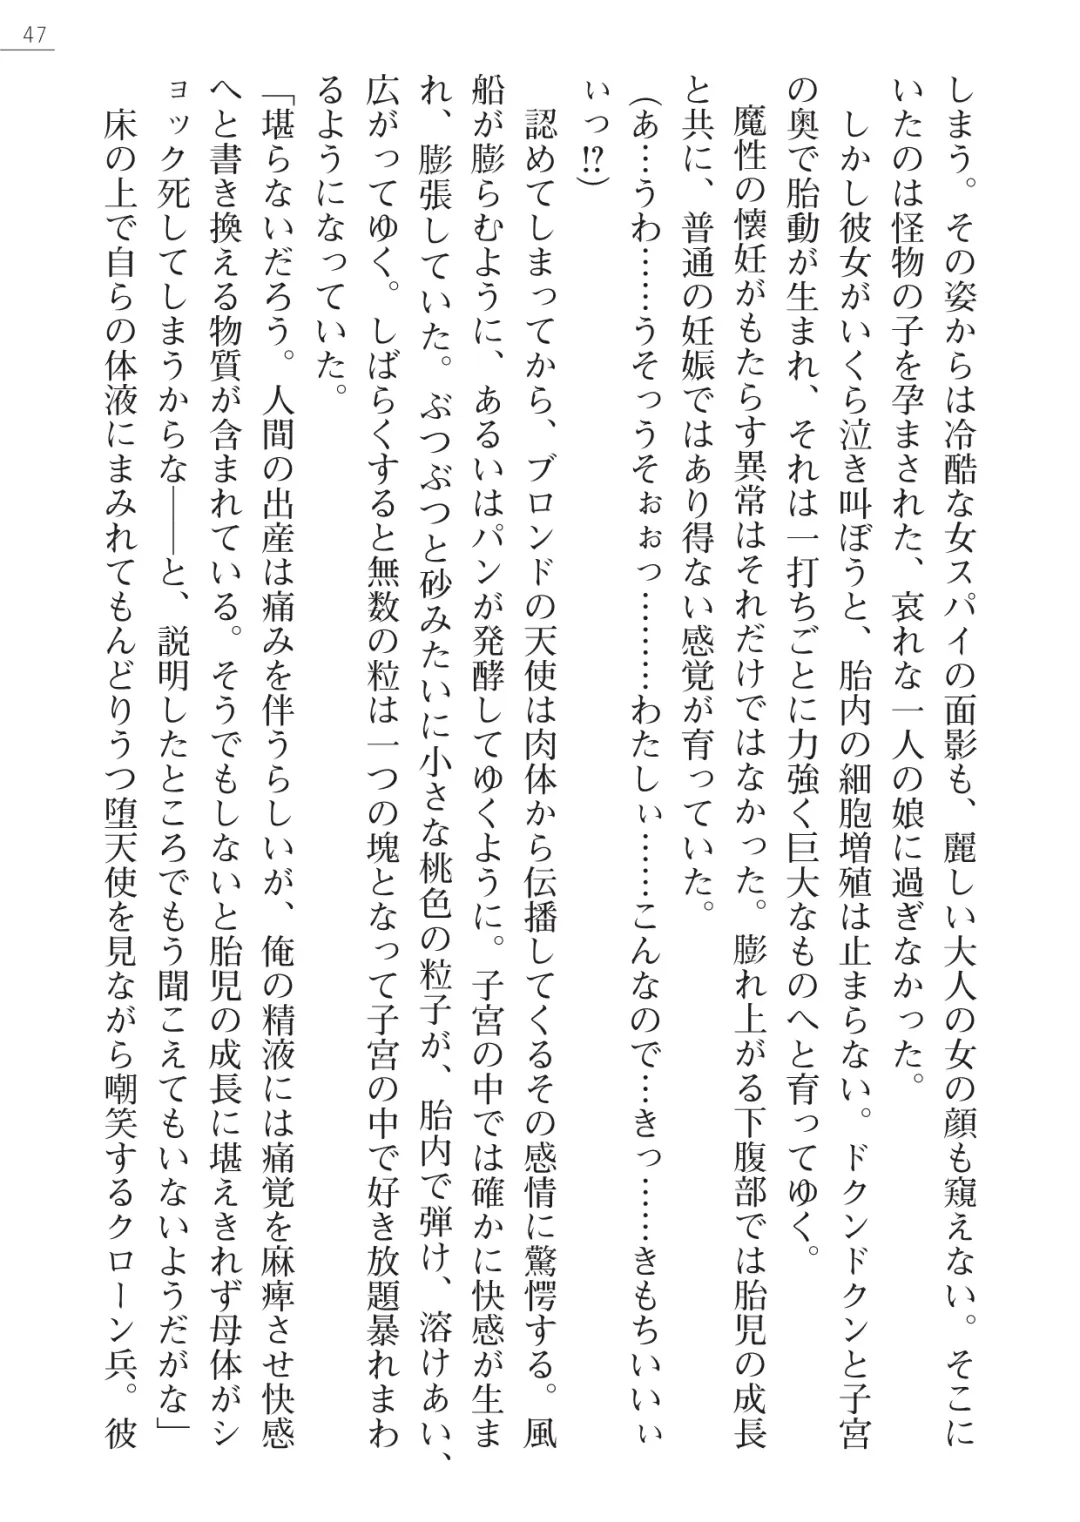 47
しまう。その姿からは冷酷な女スパイの面影も、麗しい大人の女の顔も窺えない。そこに
いたのは怪物の子を孕まされた、哀れな一人の娘に過ぎなかった。
しかし彼女がいくら泣き叫ぼうと、胎内の細胞増殖は止まらない。ドクンドクンと子宮
の奥で胎動が生まれ、それは一打ちごとに力強く巨大なものへと育ってゆく。
魔性の懐妊がもたらす異常はそれだけではなかった。膨れ上がる下腹部では胎児の成長
と共に、普通の妊娠ではあり得ない感覚が育っていた。
(あ…うわ……うそっうそぉぉっ…………わたしぃ……こんなので…きっ……きもちいいぃ
ぃっ!?)
認めてしまってから、ブロンドの天使は肉体から伝播してくるその感情に驚愕する。風
船が膨らむように、あるいはパンが発酵してゆくように。子宮の中では確かに快感が生ま
れ、膨張していた。ぶつぶつと砂みたいに小さな桃色の粒子が、胎内で弾け、溶けあい、
広がってゆく。しばらくすると無数の粒は一つの塊となって子宮の中で好き放題暴れまわ
るようになっていた。
「堪らないだろう。人間の出産は痛みを伴うらしいが、俺の精液には痛覚を麻痺させ快感
へと書き換える物質が含まれている。そうでもしないと胎児の成長に堪えきれず母体がシ
ョック死してしまうからな――と、説明したところでもう聞こえてもいないようだがな」
床の上で自らの体液にまみれてもんどりうつ堕天使を見ながら嘲笑するクローン兵。彼